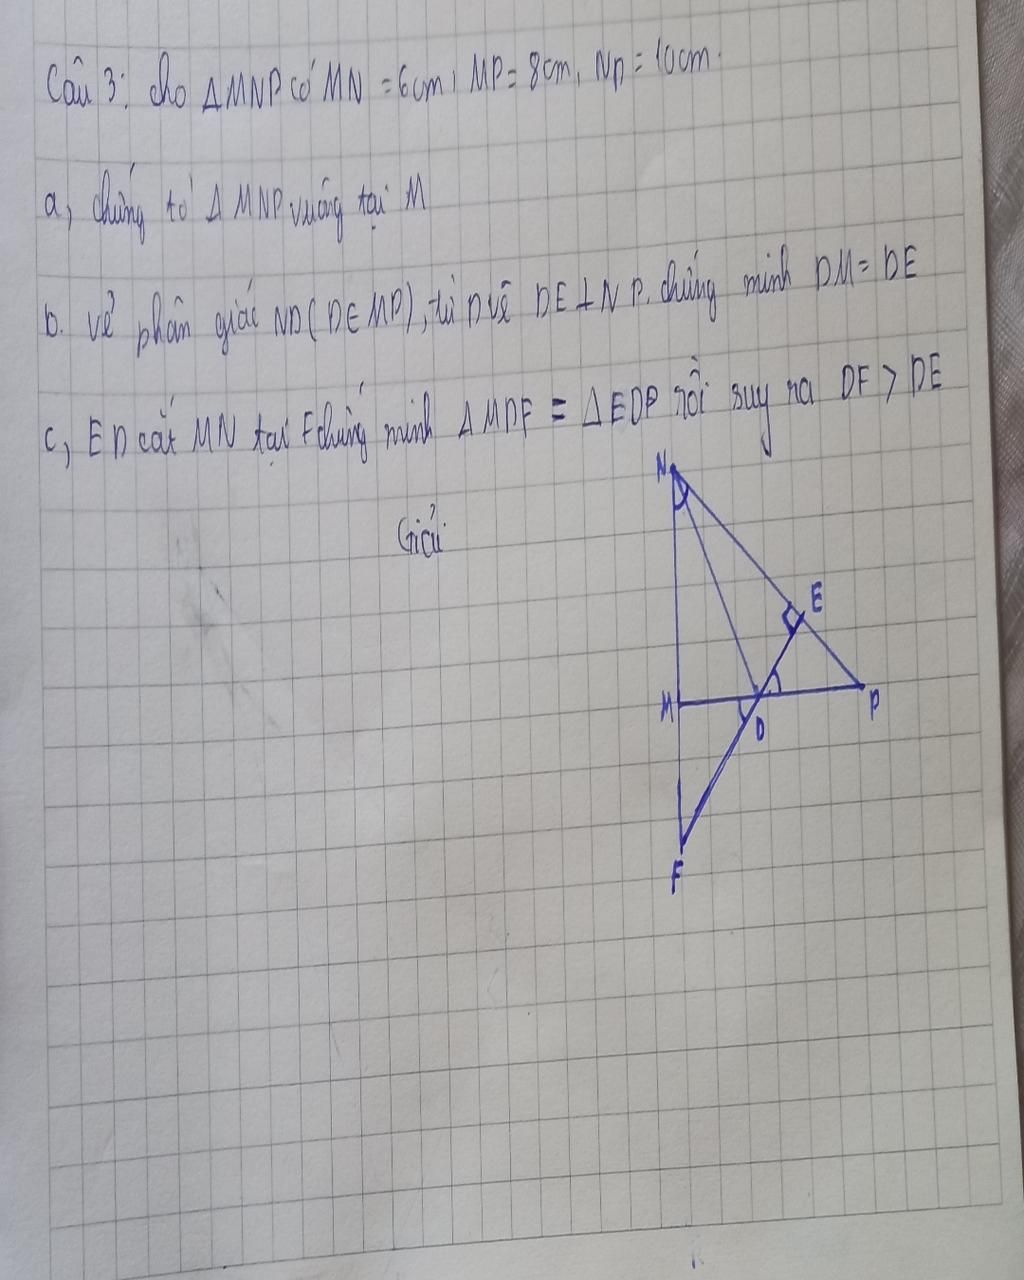 Câu 3: cho ΔMNP có MN = 6cm, MP = 8cm, NP = 10cm.
a, chứng tỏ Δ MNP vuông tại M
b. vẽ phân giác ND (D∈ MP), từ D vẽ DE ⊥ NP. chứng minh DM = DE
c, ED cắt MN tại F chứng minh ΔMDF = ΔEDP rồi suy ra DF > DE
Giải
N
E
M
D
P
F